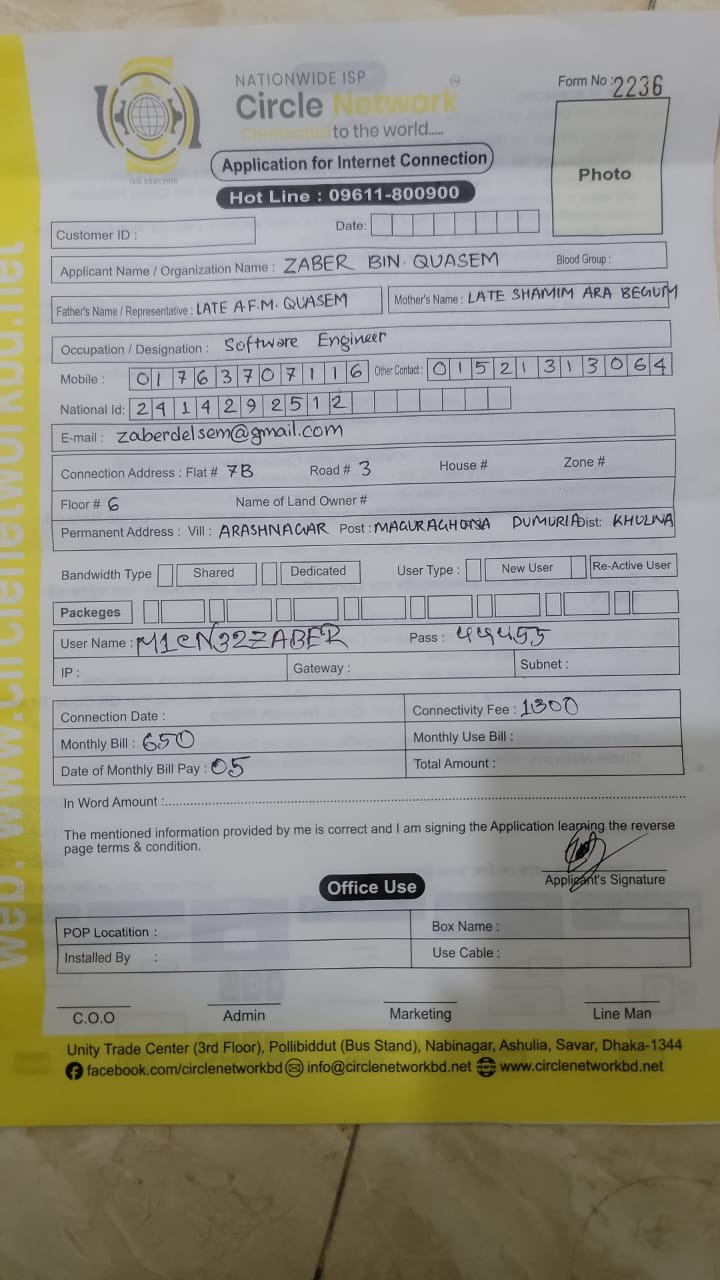 NATIONWIDE ISP
Circle Network
Connected to the world.....
ISO 9001:2015
Form No : 2236
Photo
Application for Internet Connection
Hot Line : 09611-800900
Customer ID :
Date:
Applicant Name / Organization Name : ZABER BIN QUASEM Blood Group :
Father's Name / Representative : LATE A.F.M. QUASEM Mother's Name : LATE SHAMIM ARA BEGUM
Occupation / Designation : Software Engineer
Mobile : 01763707116 Other Contact : 01521313064
National Id: 2414292512
E-mail : zaberdelsem@gmail.com
Connection Address : Flat # 7B Road # 3 House # Zone #
Floor # 6 Name of Land Owner #
Permanent Address : Vill : ARASHNAGAR Post : MAGURAGHONA DUMURIA Dist: KHULNA
Bandwidth Type Shared Dedicated User Type : New User Re-Active User
Packeges
User Name : M1CN32ZABER Pass : 44455
IP : Gateway : Subnet :
Connection Date : Connectivity Fee : 1300
Monthly Bill : 650 Monthly Use Bill :
Date of Monthly Bill Pay : 05 Total Amount :
In Word Amount :
The mentioned information provided by me is correct and I am signing the Application learning the reverse
page terms & condition.
Applicant's Signature
Office Use
POP Locatition : Box Name :
Installed By : Use Cable :
C.O.O Admin Marketing Line Man
Unity Trade Center (3rd Floor), Pollibiddut (Bus Stand), Nabinagar, Ashulia, Savar, Dhaka-1344
facebook.com/circlenetworkbd info@circlenetworkbd.net www.circlenetworkbd.net
web: www.circlenetworkbd.net